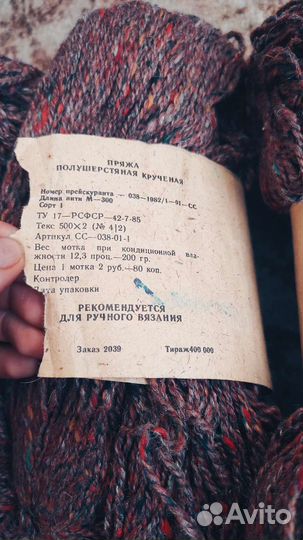 ПРЯЖА
ПОЛУШЕРСТЯНАЯ КРУЧЕНАЯ
Номер прейскуранта — 038—1982/1—01—СС
Длина нити М—300
Сорт 1
ТУ 17—РСФСР—42-7-85
Текс 500×2 (№ 4|2)
Артикул СС—038-01-1
Вес мотка при кондиционной вла-
жности 12,3 проц.—200 гр.
Цена 1 мотка 2 руб.—80 коп.
Контролер
Дата упаковки
РЕКОМЕНДУЕТСЯ
ДЛЯ РУЧНОГО ВЯЗАНИЯ
Заказ 2039 Тираж 400 000
Avito